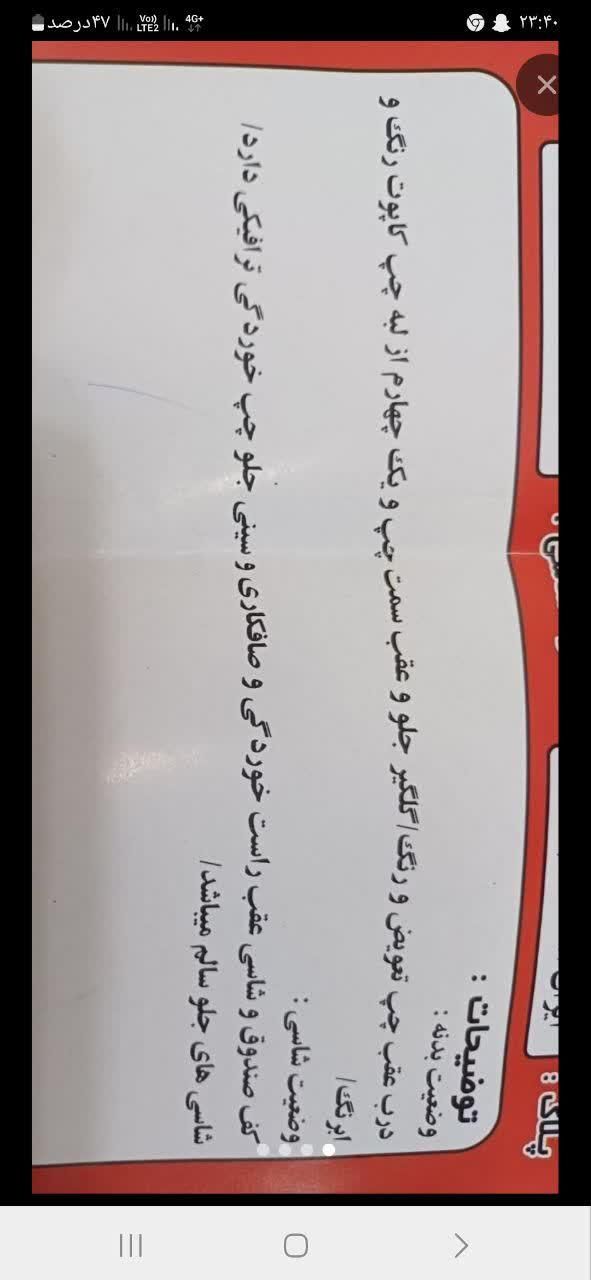 ۲۳:۴۰
4G+
Vo))
LTE2
۴۷درصد
پلاک :
ایران
توضیحات :
وضعیت بدنه :
درب عقب چپ تعویض و رنگ/گلگیر جلو و عقب سمت چپ و یک چهارم از لبه چپ کاپوت رنگ و
ابرنگ/
وضعیت شاسی :
کف صندوق و شاسی عقب راست خوردگی و صافکاری و سینی جلو چپ خوردگی ترافیکی دارد/
شاسی های جلو سالم میباشد/